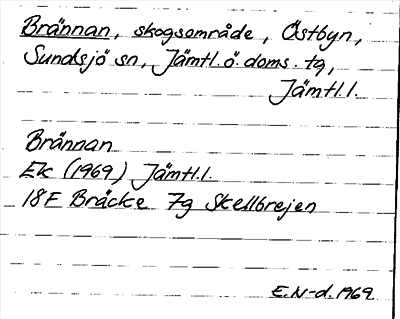 Brännan, skogsområde, Östbyn,
Sundsjö sn, Jämtl.ö.doms.tg,
Jämtl.l.
Brännan
Ek (1969) Jämtl.l.
18F Bräcke 7g Skellbrejen
E.N-d.1969